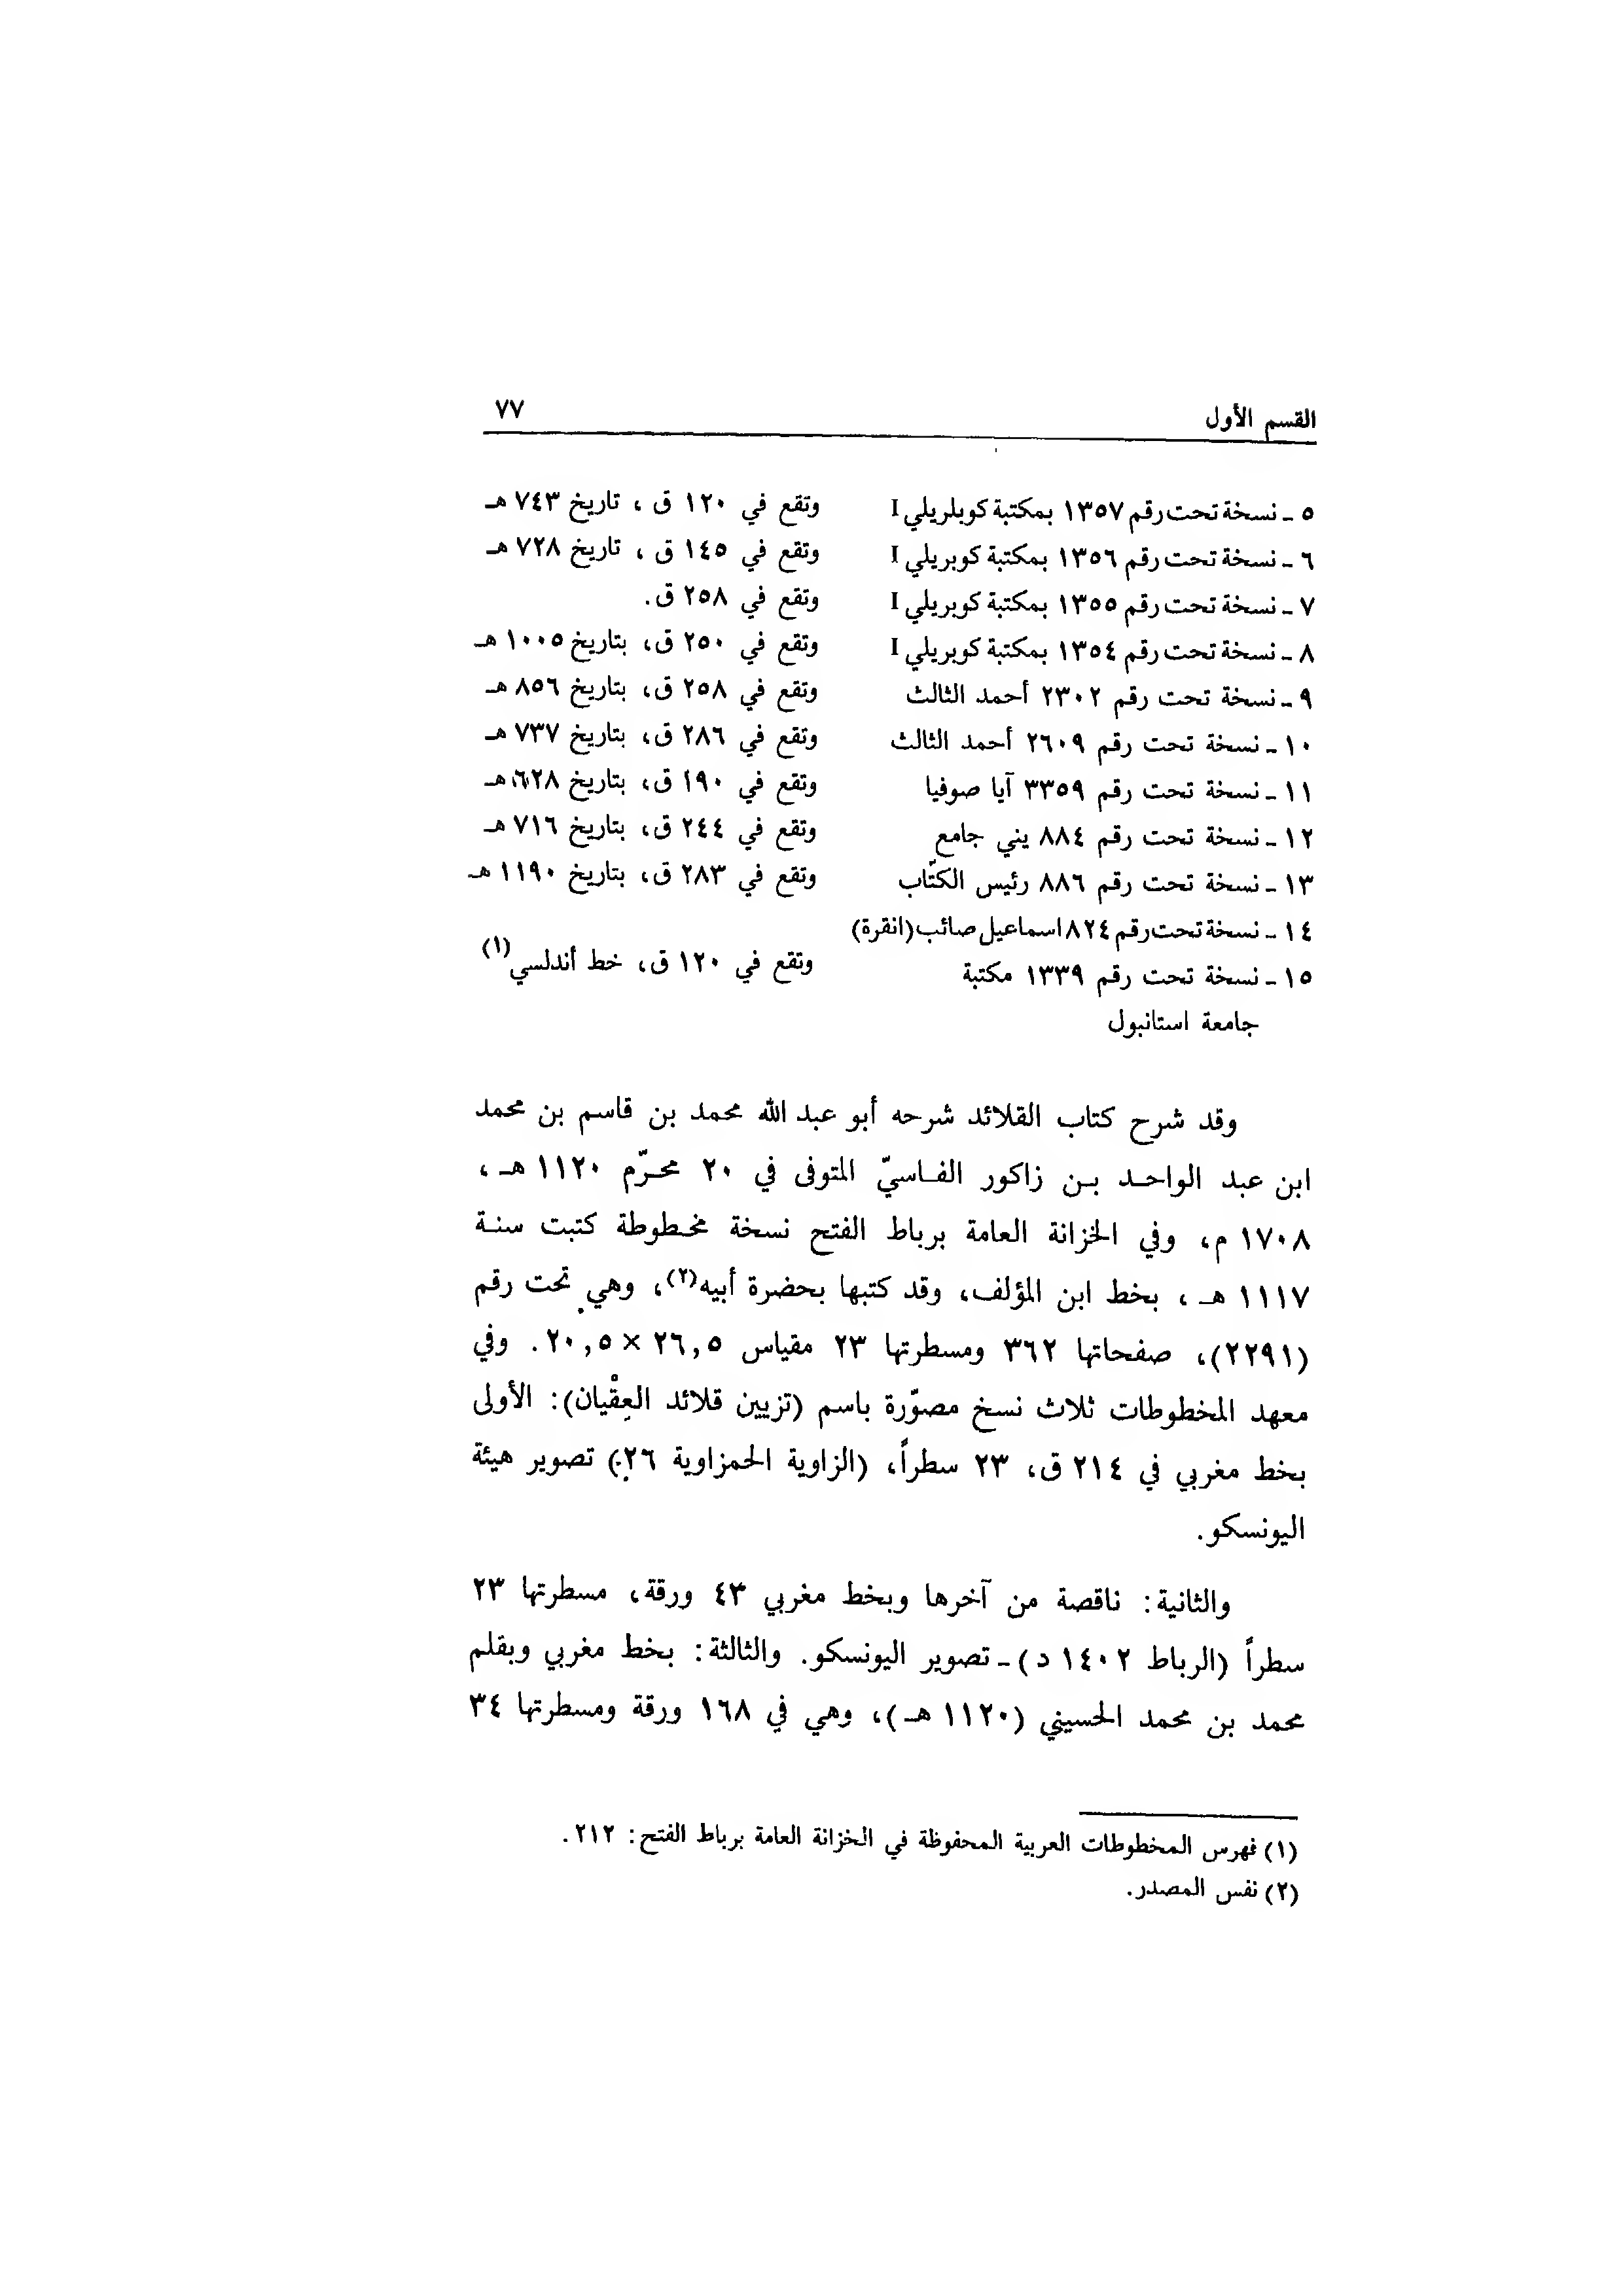 القسم الأول ٧٧
٥ - نسخة تحت رقم ١٣٥٧ بمكتبة كوبلريلي I وتقع في ١٢٠ ق ، تاريخ ٧٤٣ هـ
٦ - نسخة تحت رقم ١٣٥٦ بمكتبة كوبريلي I وتقع في ١٤٥ ق ، تاريخ ٧٢٨ هـ
٧ - نسخة تحت رقم ١٣٥٥ بمكتبة كوبريلي I وتقع في ٢٥٨ ق.
٨ - نسخة تحت رقم ١٣٥٤ بمكتبة كوبريلي I وتقع في ٢٥٠ ق، بتاريخ ١٠٠٥ هـ
٩ - نسخة تحت رقم ٢٣٠٢ أحمد الثالث وتقع في ٢٥٨ ق، بتاريخ ٨٥٦ هـ
١٠ - نسخة تحت رقم ٢٦٠٩ أحمد الثالث وتقع في ٢٨٦ ق، بتاريخ ٧٣٧ هـ
١١ - نسخة تحت رقم ٣٣٥٩ آيا صوفيا وتقع في ١٩٠ ق، بتاريخ ٦٢٨ هـ
١٢ - نسخة تحت رقم ٨٨٤ يني جامع وتقع في ٢٤٤ ق، بتاريخ ٧١٦ هـ
١٣ - نسخة تحت رقم ٨٨٦ رئيس الكتّاب وتقع في ٢٨٣ ق، بتاريخ ١١٩٠ هـ
١٤ - نسخة تحت رقم ٨٢٤ اسماعيل صائب (انقرة)
١٥ - نسخة تحت رقم ١٣٣٩ مكتبة وتقع في ١٢٠ ق، خط أندلسي(١)
جامعة استانبول
وقد شرح كتاب القلائد شرحه أبو عبد الله محمد بن قاسم بن محمد
ابن عبد الواحد بن زاكور الفاسيّ المتوفى في ٢٠ محرّم ١١٢٠ هـ ،
١٧٠٨ م، وفي الخزانة العامة برباط الفتح نسخة مخطوطة كتبت سنة
١١١٧ هـ ، بخط ابن المؤلف، وقد كتبها بحضرة أبيه(٢)، وهي تحت رقم
(٢٢٩١)، صفحاتها ٣٦٢ ومسطرتها ٢٣ مقياس ٢٦,٥ × ٢٠,٥. وفي
معهد المخطوطات ثلاث نسخ مصوّرة باسم (تزيين قلائد العِقْيان): الأولى
بخط مغربي في ٢١٤ ق، ٢٣ سطراً، (الزاوية الحمزاوية ٢٦) تصوير هيئة
اليونسكو.
والثانية: ناقصة من آخرها وبخط مغربي ٤٣ ورقة، مسطرتها ٢٣
سطراً (الرباط ١٤٠٢ د) - تصوير اليونسكو. والثالثة: بخط مغربي وبقلم
محمد بن محمد الحسيني (١١٢٠ هـ)، وهي في ١٦٨ ورقة ومسطرتها ٣٤
(١) فهرس المخطوطات العربية المحفوظة في الخزانة العامة برباط الفتح: ٢١٢.
(٢) نفس المصدر.